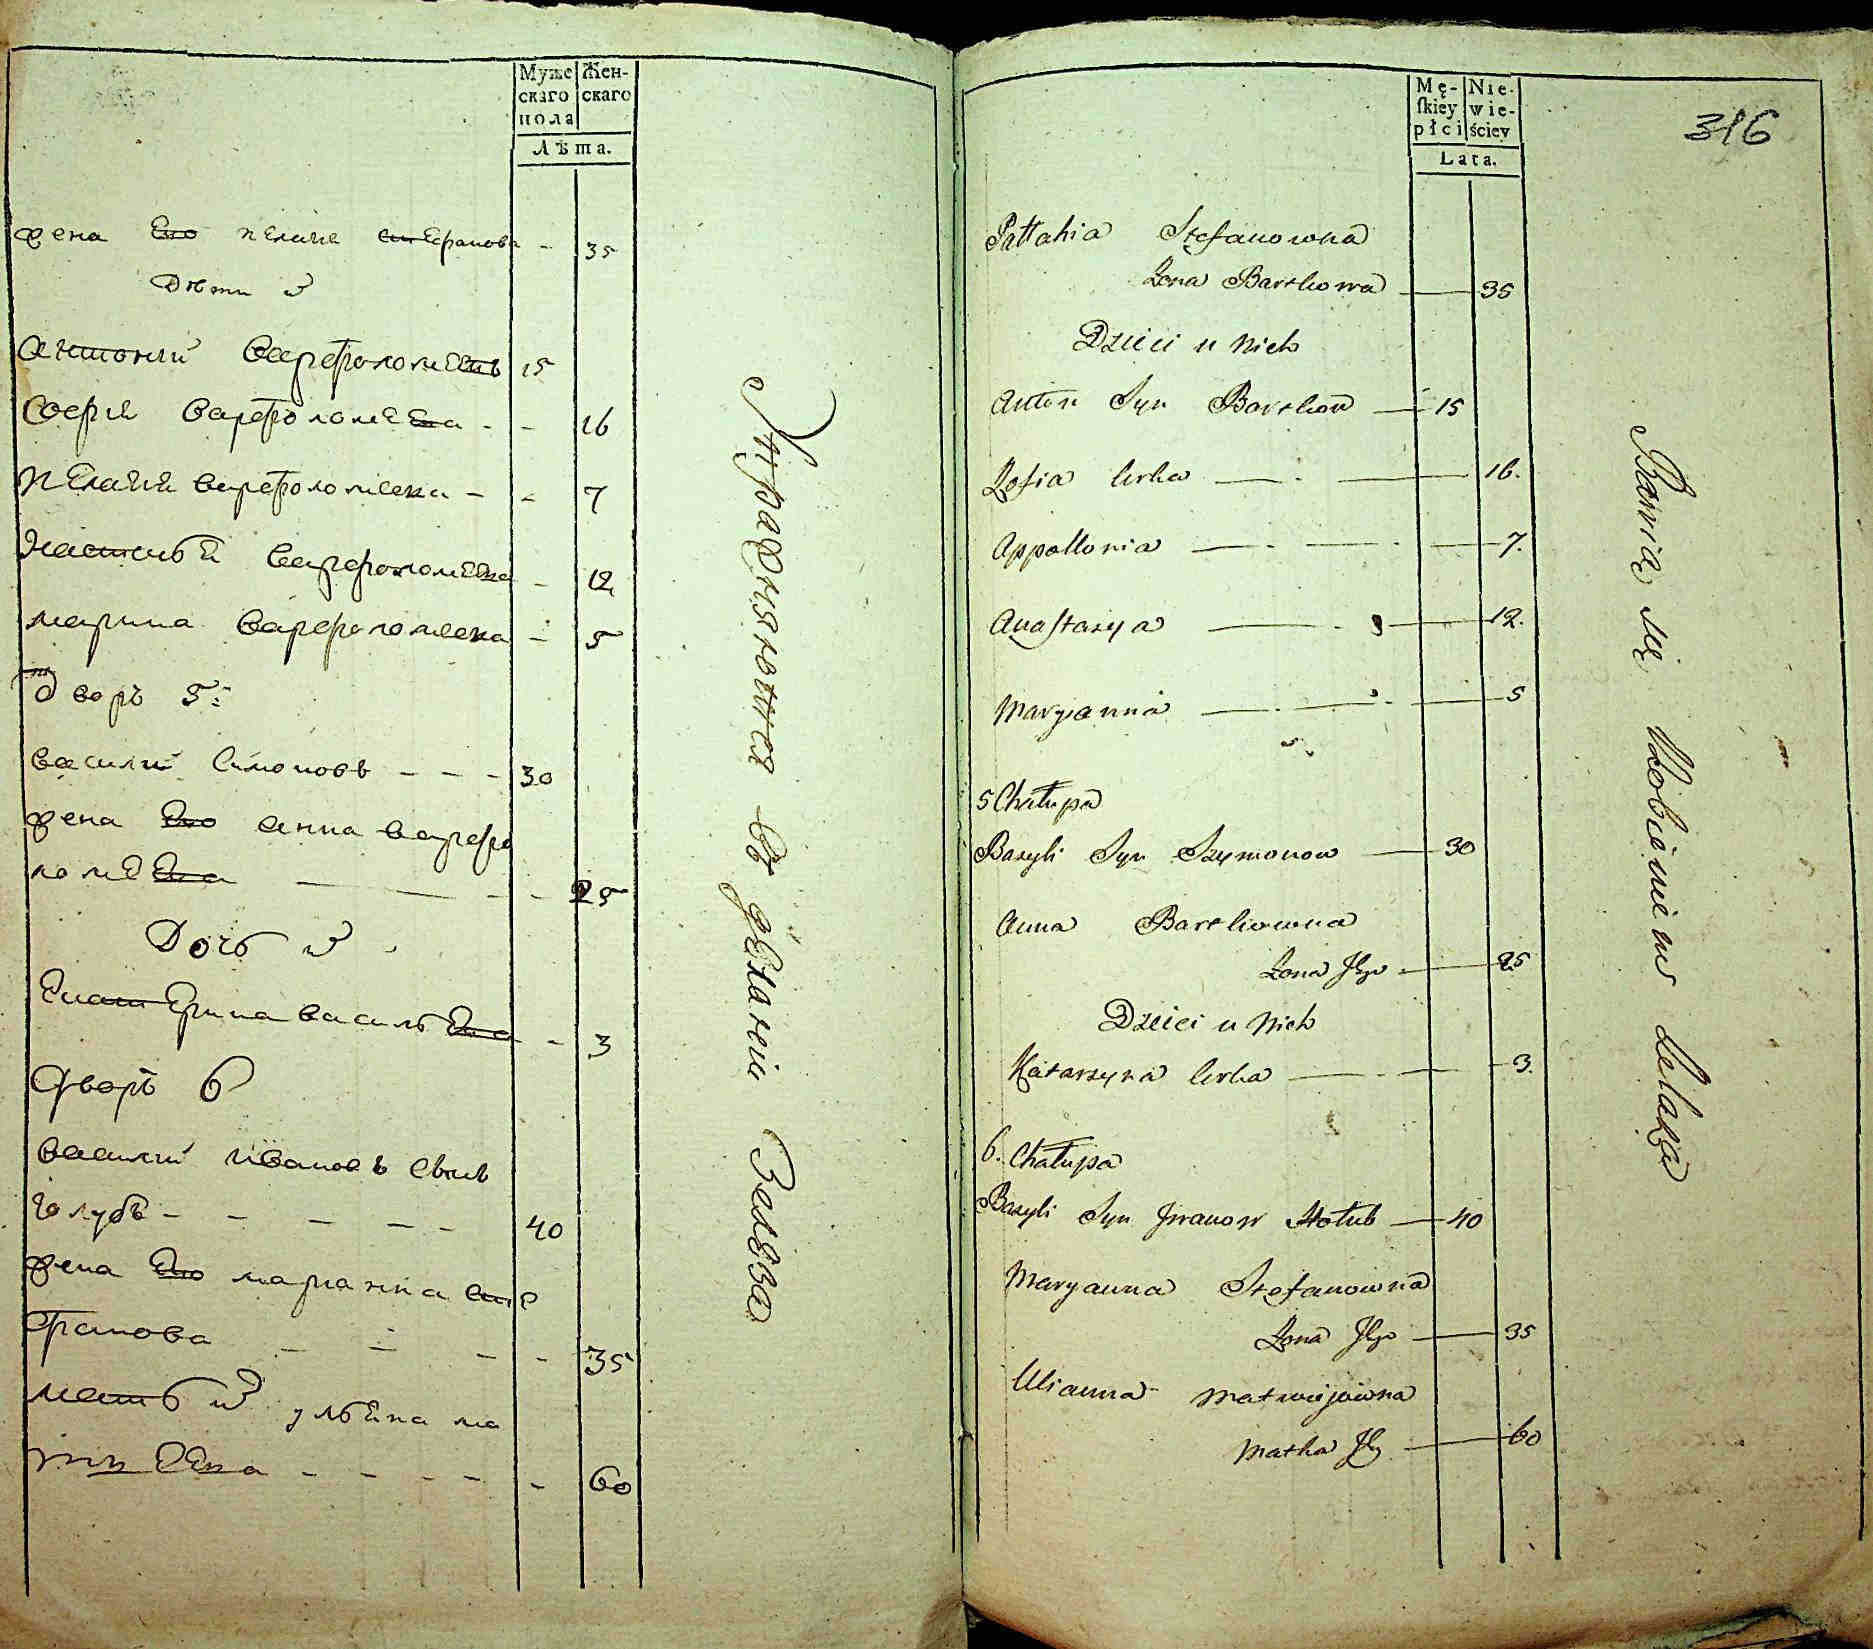 Муже
скаго
пола
Жен-
скаго
Лѣта.
жена Его пелагія стефанова - 35
Дѣти и
антоній варфоломеевъ 15
софия варфоломеева - - 16
пелагия варфоломеева - - 7
настасья варфоломеева - 12
марина варфоломеева - 5
дворъ 5:
василий Симоновъ - - - 30
жена Его анна варфо
ломеева - - 25
Дочь и
Екатерина васильева - - 3
Дворъ 6
василий ивановъ сынъ
голубъ - - - - - 40
жена Его марианна сте
фанова - - - - 35
мать и ульяна ма
твеева - - - - - 60
Упражняются въ дѣланіи Желѣза
Mę-
skiey
płci
Nie-
wie-
ściey
Lata.
316
Pałłahia Stefanowna
Żona Bartkowa 35
Dzieci u Nich
Anton Syn Bartkow 15
Zofia Corka 16.
Appollonia 7.
Anastazya 12.
Maryanna 5
5 Chałupa
Bazyli Syn Szymonow 30
Anna Bartkowna
Żona Jego 25
Dzieci u Nich
Katarzyna Corka 3.
6. Chałupa
Bazyli Syn Jwanow Hołub 40
Maryanna Stefanowna
Żona Jego 35
Ulianna Matwiejowna
Matka Jego 60
Bawią się Robieniem Żelaza